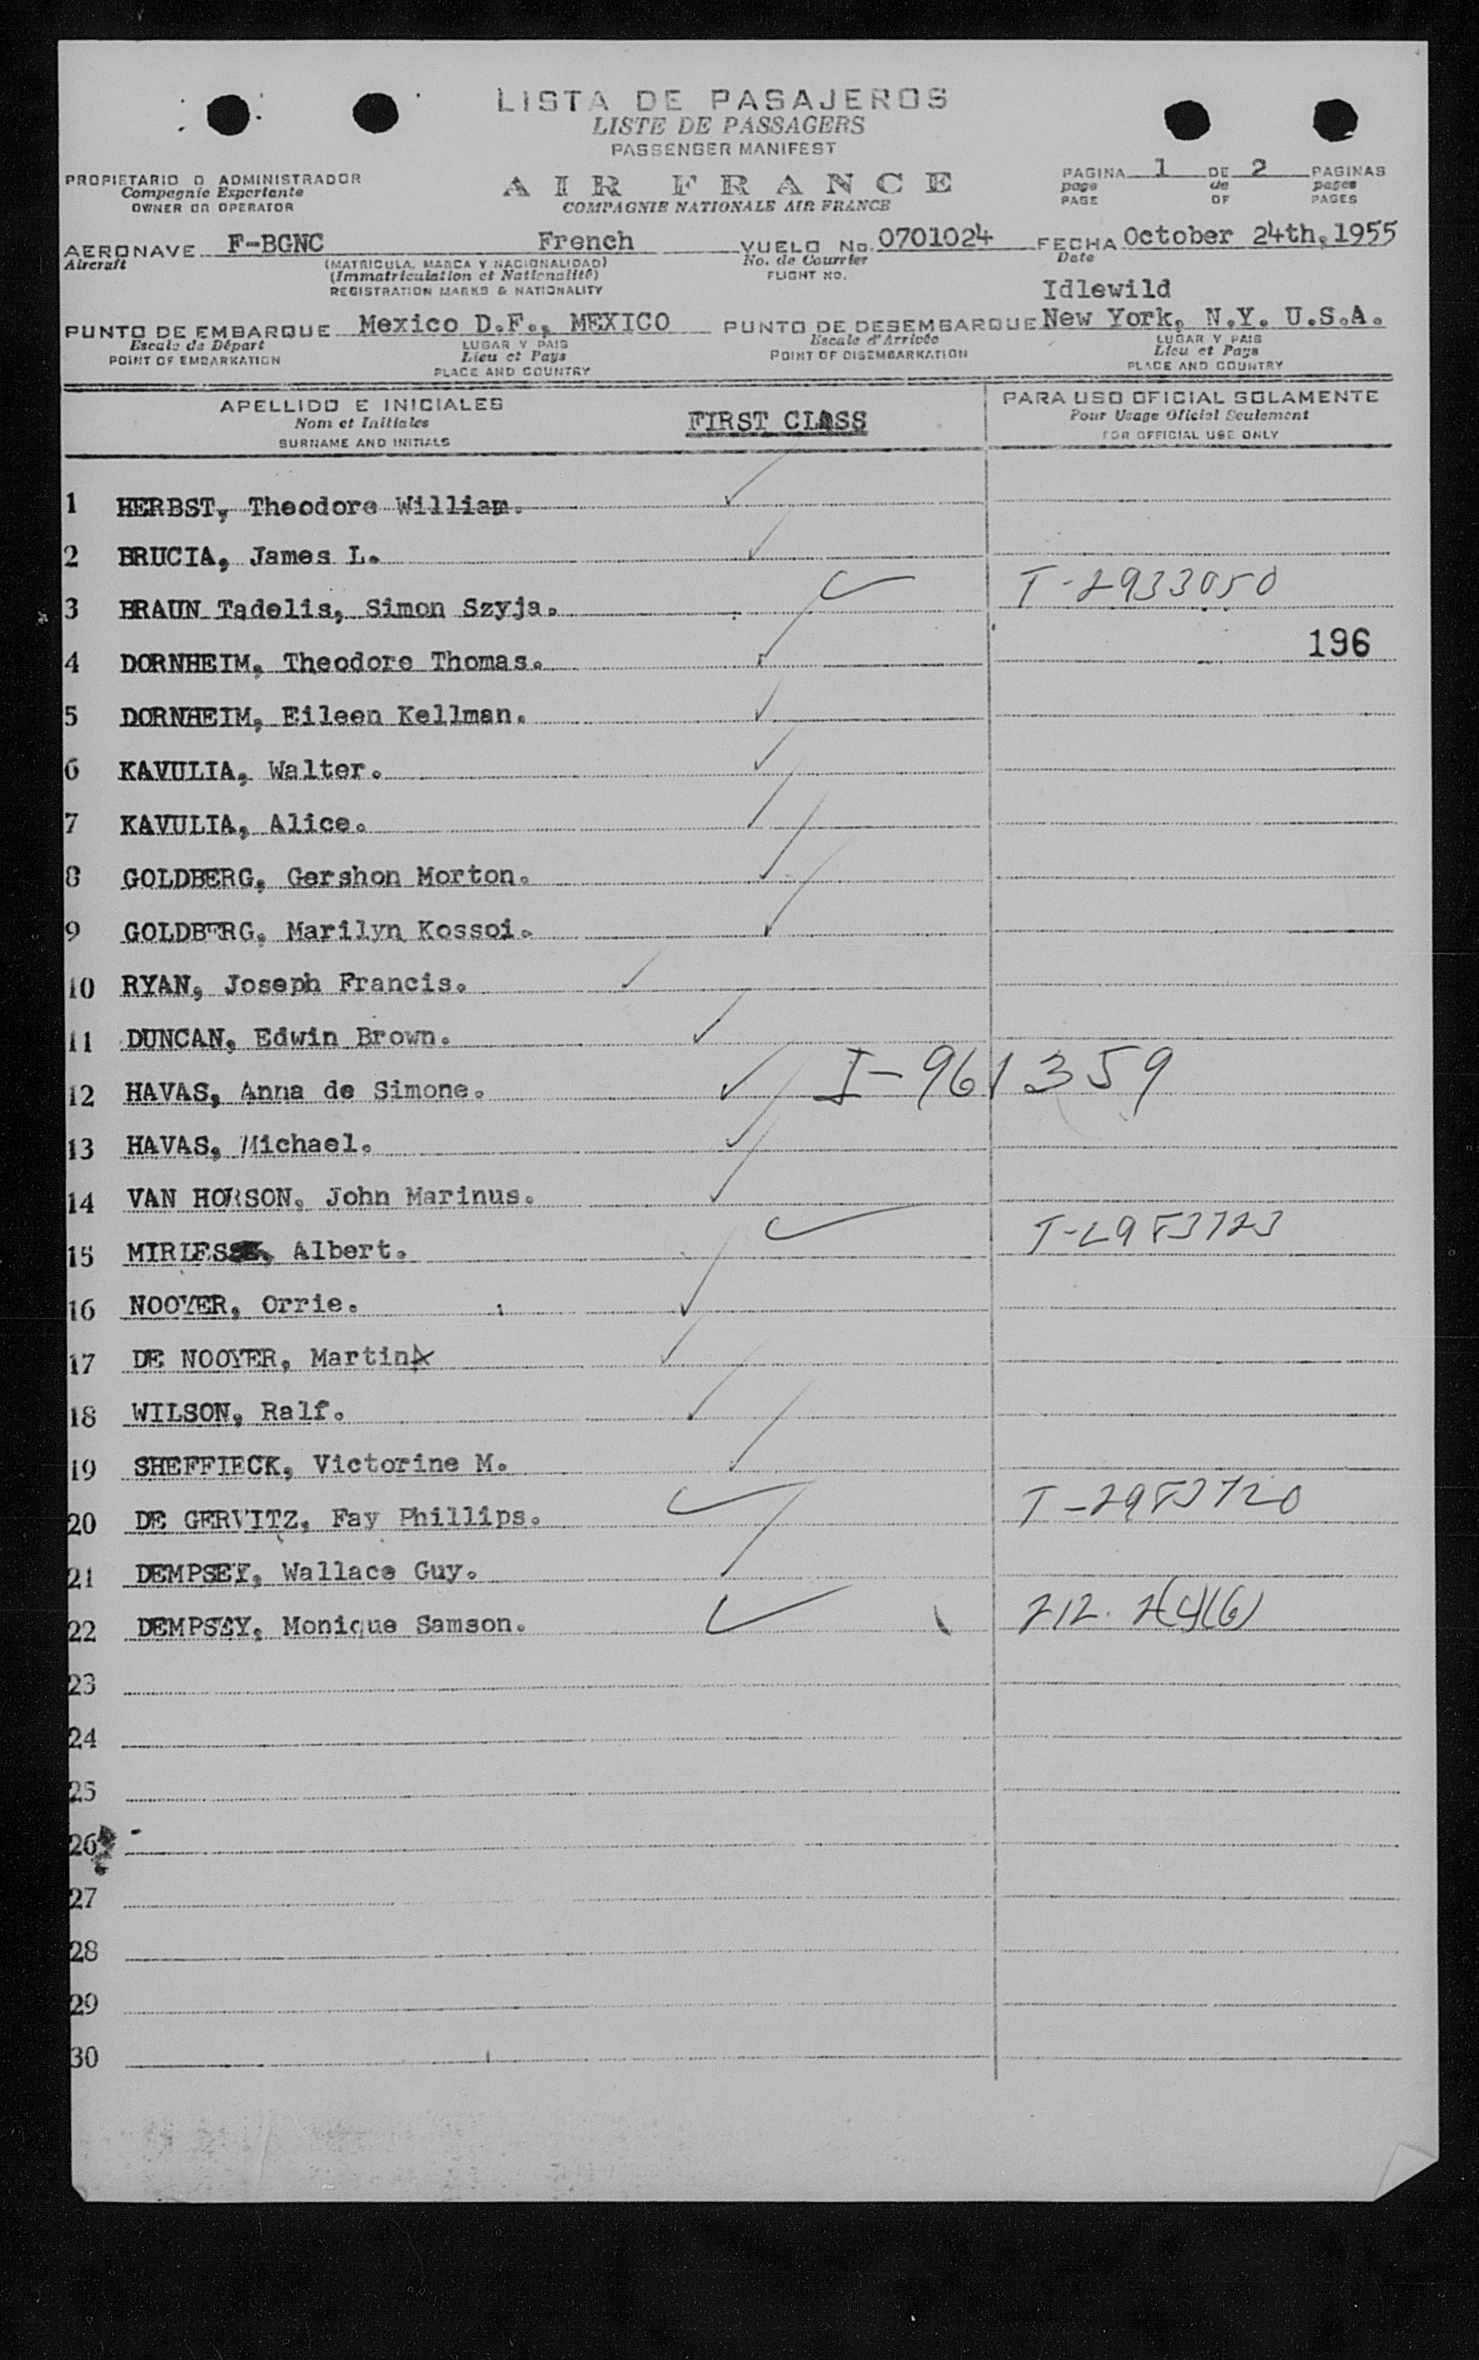 LISTA DE PASAJEROS
LISTE DE PASSAGERS
PASSENGER MANIFEST
PROPIETARIO O ADMINISTRADOR
Compagnie Exportante
OWNER OR OPERATOR
AIR FRANCE
COMPAGNIE NATIONALE AIR FRANCE
PAGINA 1 DE 2 PAGINAS
page de pages
PAGE OF PAGES
AERONAVE F-BGNC French VUELO No. 0701024 FECHA October 24th, 1955
Aircraft (MATRICULA, MARCA Y NACIONALIDAD) No. de Courrier Date
(Immatriculation et Nationalité) FLIGHT NO.
REGISTRATION MARKS & NATIONALITY
Idlewild
PUNTO DE EMBARQUE Mexico D.F., MEXICO PUNTO DE DESEMBARQUE New York, N.Y. U.S.A.
Escale de Départ LUGAR Y PAIS Escale d'Arrivée LUGAR Y PAIS
POINT OF EMBARKATION Lieu et Pays POINT OF DISEMBARKATION Lieu et Pays
PLACE AND COUNTRY PLACE AND COUNTRY
APELLIDO E INICIALES FIRST CLASS PARA USO OFICIAL SOLAMENTE
Nom et Initiales Pour Usage Oficiel Seulement
SURNAME AND INITIALS FOR OFFICIAL USE ONLY
1 HERBST, Theodore William.
2 BRUCIA, James L.
3 BRAUN Tadelis, Simon Szyja. T-2933050
4 DORNHEIM, Theodore Thomas. 196
5 DORNHEIM, Eileen Kellman.
6 KAVULIA, Walter.
7 KAVULIA, Alice.
8 GOLDBERG, Gershon Morton.
9 GOLDBERG, Marilyn Kossoi.
10 RYAN, Joseph Francis.
11 DUNCAN, Edwin Brown.
12 HAVAS, Anna de Simone. I-961359
13 HAVAS, Michael.
14 VAN HORSON, John Marinus.
15 MIRIESS, Albert. T-2953723
16 NOOYER, Orrie.
17 DE NOOYER, Martin
18 WILSON, Ralf.
19 SHEFFIECK, Victorine M.
20 DE GERVITZ, Fay Phillips. T-2953720
21 DEMPSEY, Wallace Guy.
22 DEMPSEY, Monique Samson. 212.2(4)(6)
23
24
25
26
27
28
29
30